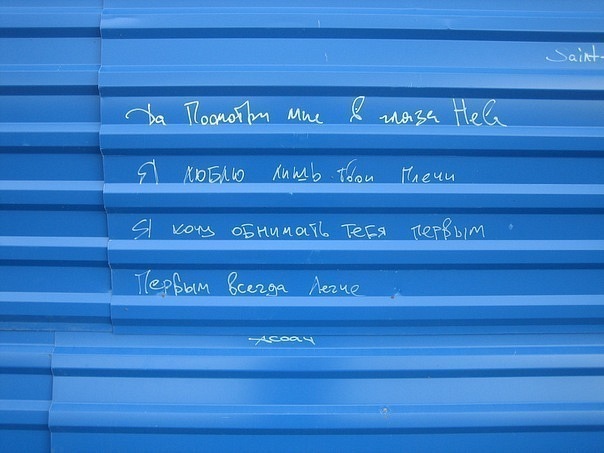 Saint-
Да Посмотри мне в глаза Нева
Я люблю лишь твои плечи
Я хочу обнимать тебя первым
Первым всегда легче